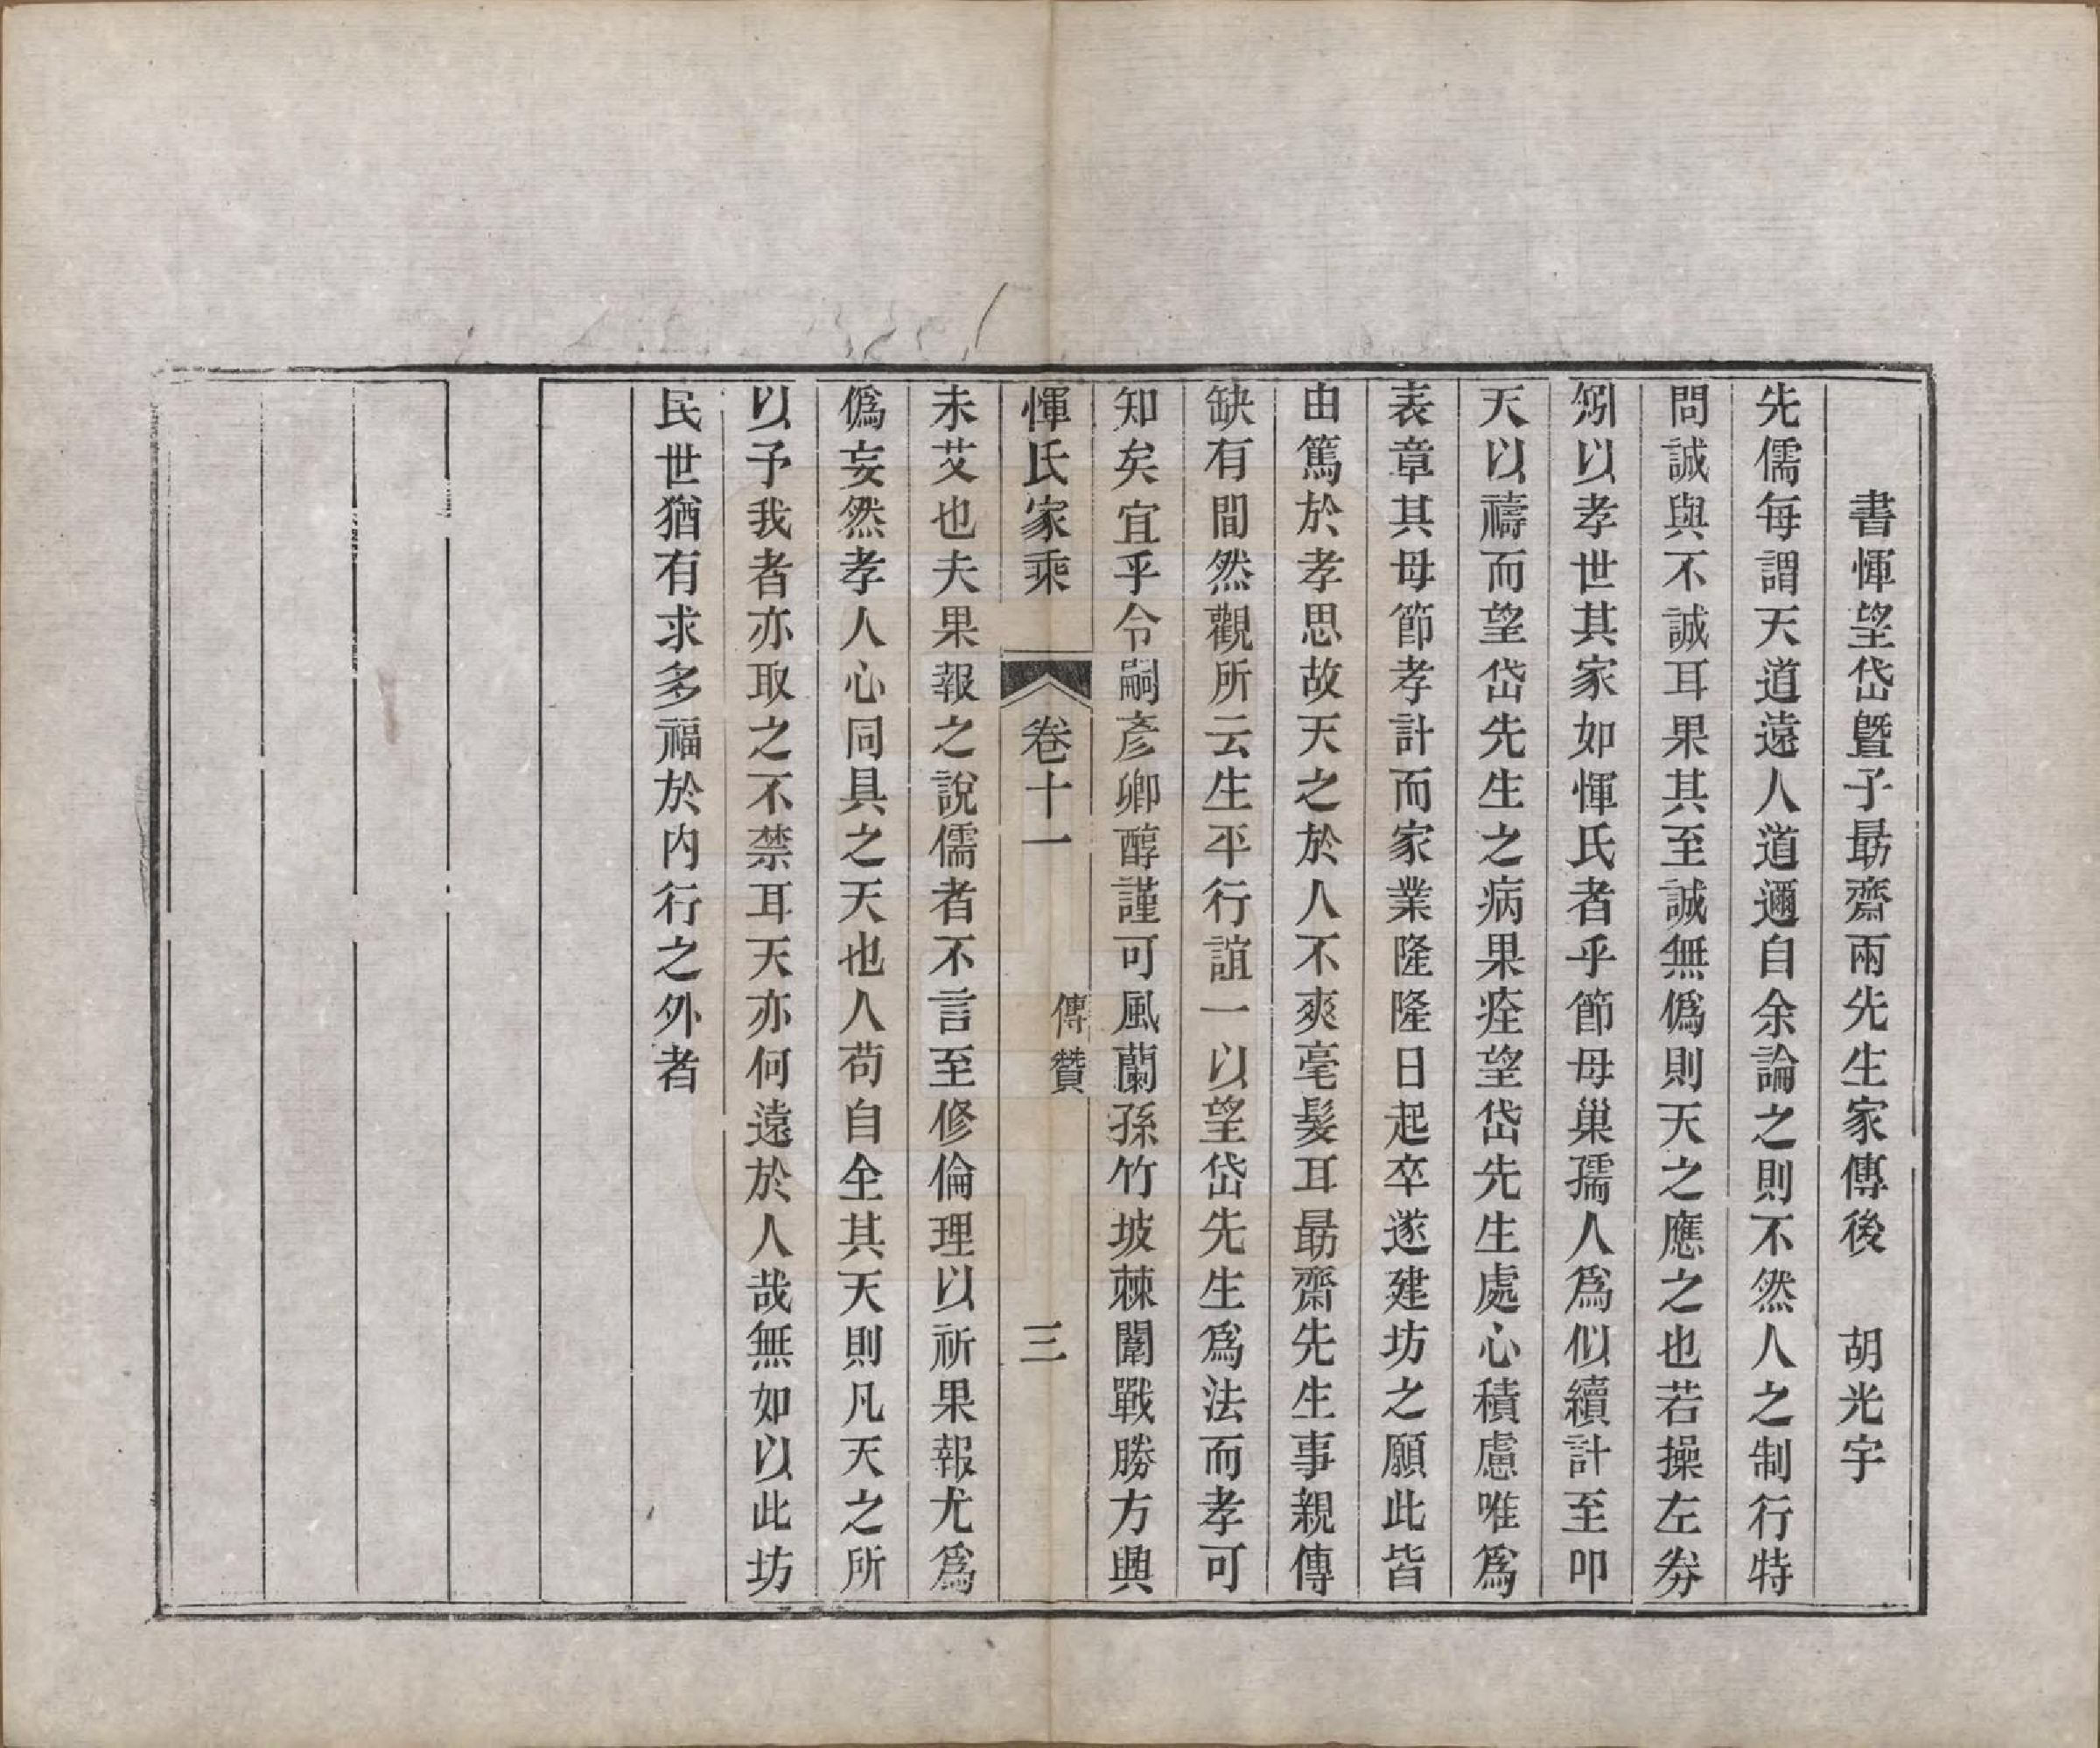 書惲望岱曁子勗齋兩先生家傳後　胡光宇
先儒每謂天道遠人道邇自余論之則不然人之制行特
問誠與不誠耳果其至誠無僞則天之應之也若操左劵
矧以孝世其家如惲氏者乎節母巢孺人爲似續計至叩
天以禱而望岱先生之病果痊望岱先生處心積慮唯爲
表章其母節孝計而家業隆隆日起卒遂建坊之願此皆
由篤於孝思故天之於人不爽毫髮耳勗齋先生事親傳
缺有間然觀所云生平行誼一以望岱先生爲法而孝可
知矣宜乎令嗣彥卿醇謹可風蘭孫竹坡棘闈戰勝方興
惲氏家乘　卷十一　傳贊　三
未艾也夫果報之說儒者不言至修倫理以祈果報尤爲
僞妄然孝人心同具之天也人苟自全其天則凡天之所
以予我者亦取之不禁耳天亦何遠於人哉無如以此坊
民世猶有求多福於内行之外者